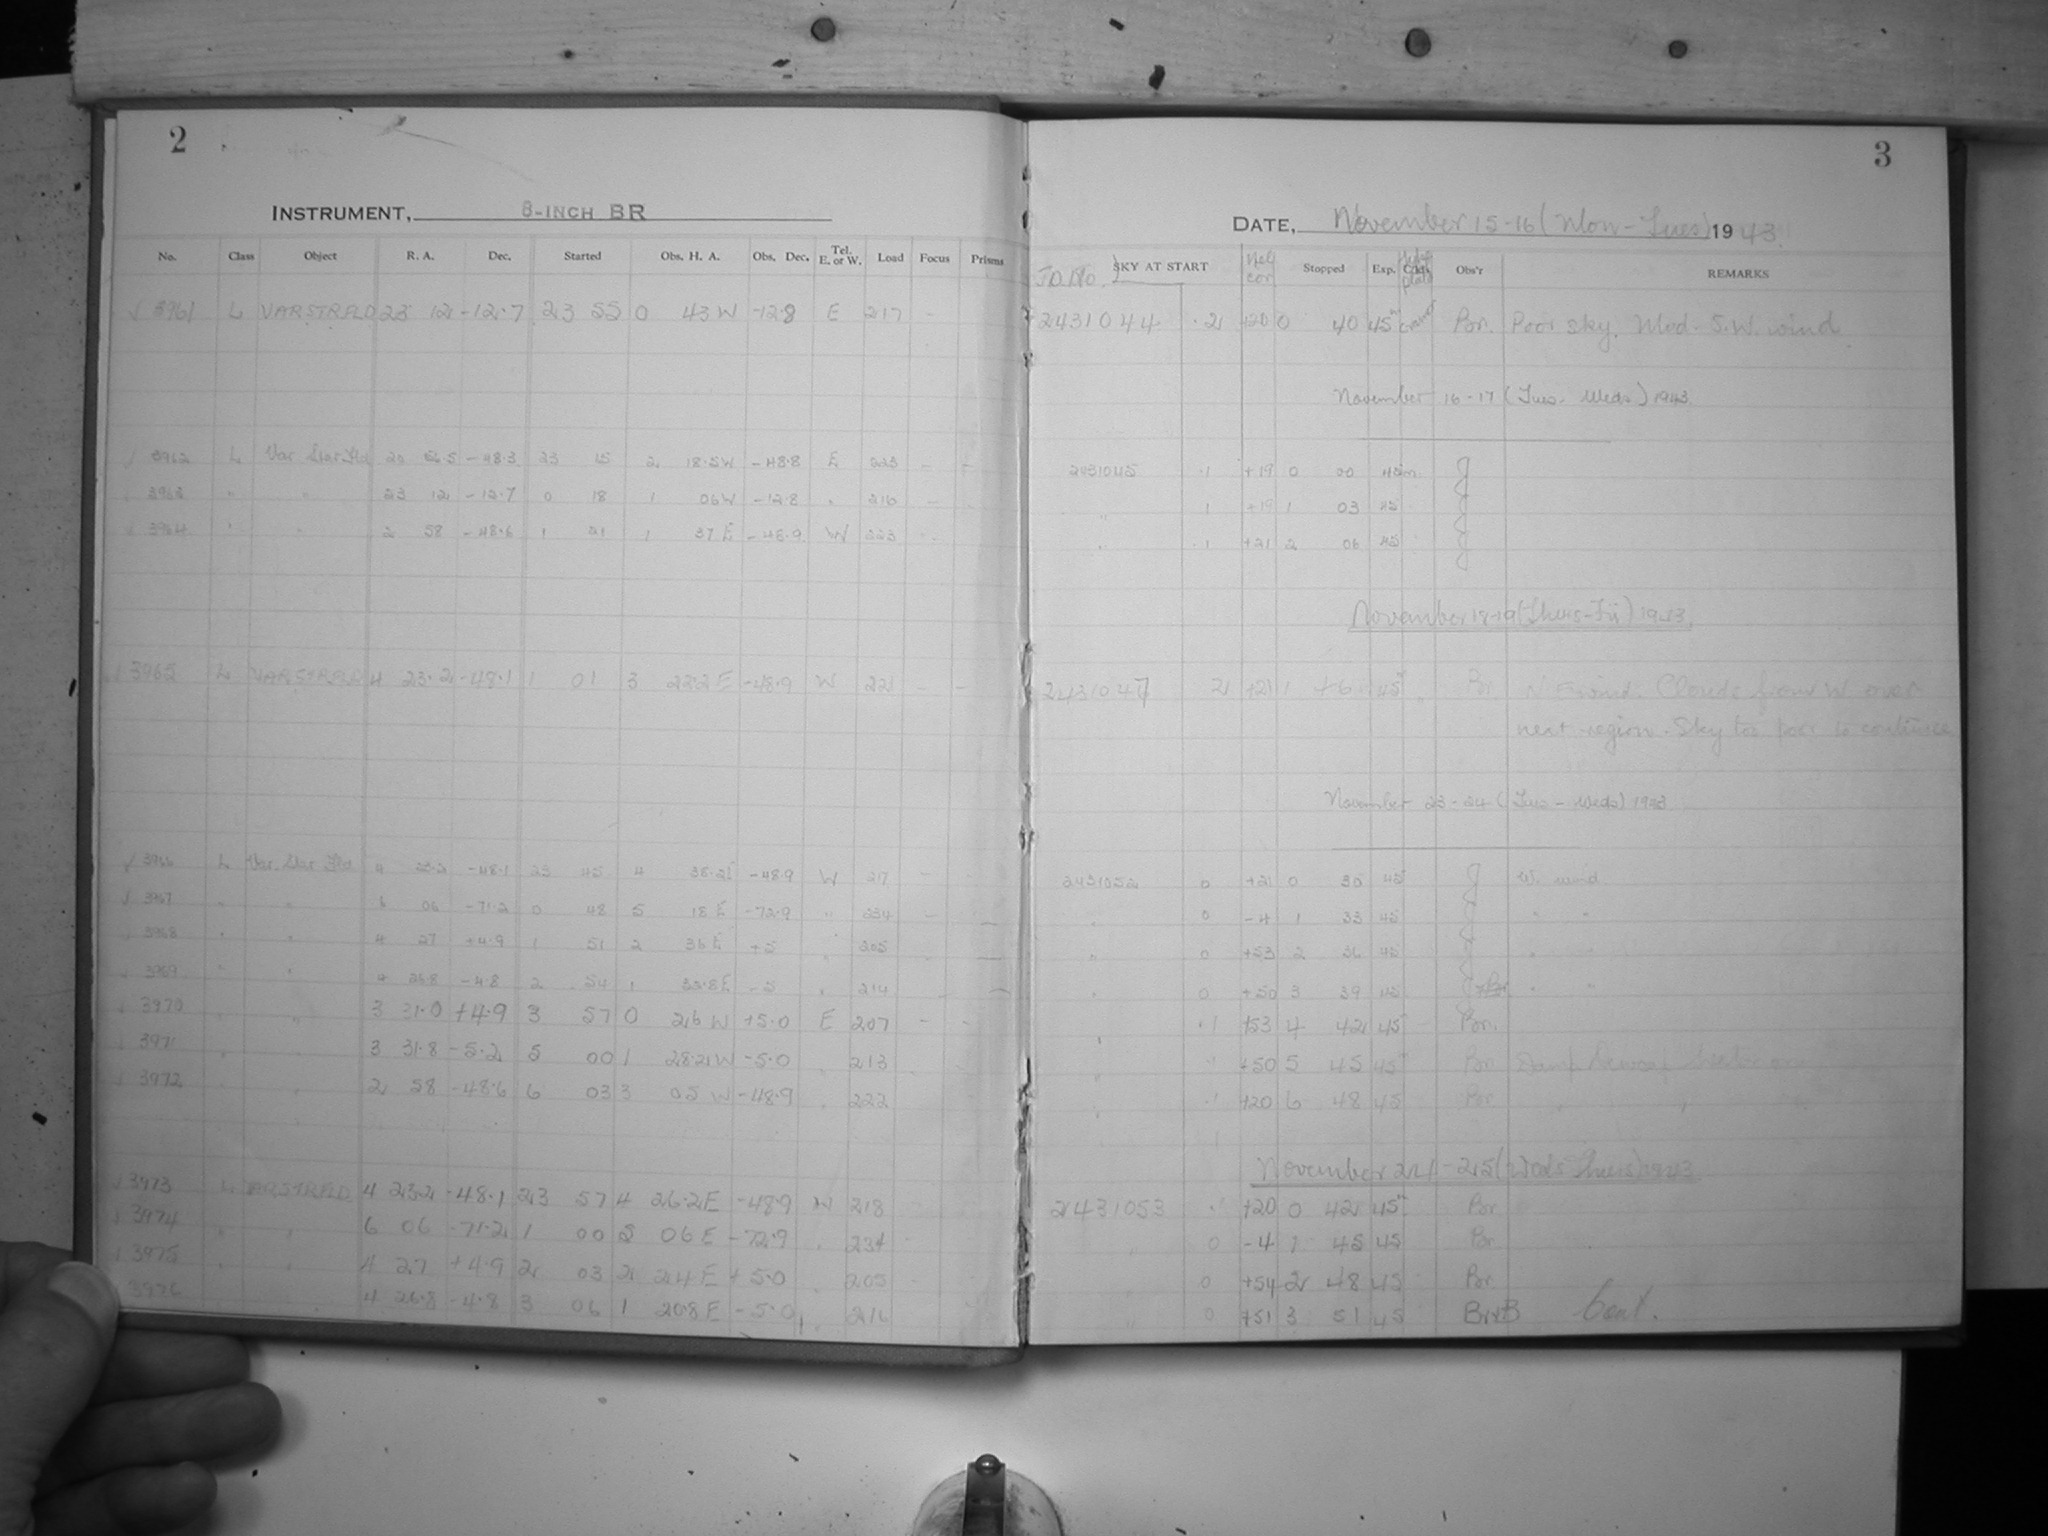 2
INSTRUMENT, 8-INCH BR
No. Class Object R. A. Dec. Started Obs. H. A. Obs. Dec. Tel. E. or W. Load Focus Prisms
3961 L VARSTRFLD 23 12 -12.7 23 55 0 43 W -12.8 E 217 -
3962 L Var Star Fld 20 -48.3 23 15 2 18.5W -48.8 E 223 - -
3963 " " 23 12 -12.7 0 18 1 06W -12.8 " 216 -
3964 " " 2 58 -48.6 1 21 1 37 E -48.9 W 223
3965 L VARSTRFLD 4 23.2 -48.1 1 01 3 22.2 E -48.9 W 221 - -
3966 L Var. Star Fld 4 23.2 -48.1 23 45 4 38.2E -48.9 W 217 -
3967 " " 6 06 -71.2 0 48 5 18 E -72.9 " 234 - -
3968 " " 4 27 +4.9 1 51 2 36 E +5 " 205 -
3969 " " 4 26.8 -4.8 2 54 1 33.8E -5 " 214 -
3970 " " 3 31.0 +4.9 3 57 0 26 W +5.0 E 207 - -
3971 " " 3 31.8 -5.2 5 00 1 28.2W -5.0 " 213
3972 " " 2 58 -48.6 6 03 3 05 W -48.9 " 222
3973 L VARSTRFLD 4 23.2 -48.1 23 57 4 26.2E -48.9 W 218
3974 " " 6 06 -71.2 1 00 5 06 E -72.9 " 234
3975 " " 4 27 +4.9 2 03 2 24 E +5.0 " 205
3976 4 26.8 -4.8 3 06 1 20.8 E -5.0 " 216
3
DATE, November 15-16 (Mon-Tues) 1943.
J.D. No. SKY AT START Hel cor Stopped Exp. Obs'r REMARKS
2431044 .2 +20 0 40 45m Cramer Br. Poor sky. Mod. S.W. wind
November 16-17 (Tues. Weds) 1943.
2431045 .1 +19 0 00 45m J
" .1 +19 1 03 45 J
" .1 +21 2 06 45 J
November 18-19 (Thurs-Fri) 1943.
2431047 .2 +21 1 46 45m " Br N E wind. Clouds from W over
next region. Sky too poor to continue
November 23-24 (Tues - Weds) 1943
2431052 0 +21 0 30 45 J W. wind
" 0 -4 1 33 45 J " "
" 0 +53 2 36 45 J " "
" 0 +50 3 39 45 J " "
" .1 +53 4 42 45 Br.
" " +50 5 45 45 Br Damp
" .1 +20 6 48 45 Br " "
November 24-25 (Weds-Thurs) 1943
2431053 .1 +20 0 42 45m Br
" 0 -4 1 45 45 Br
0 +54 2 48 45 Br.
" 0 +51 3 51 45 Br+B Cont.